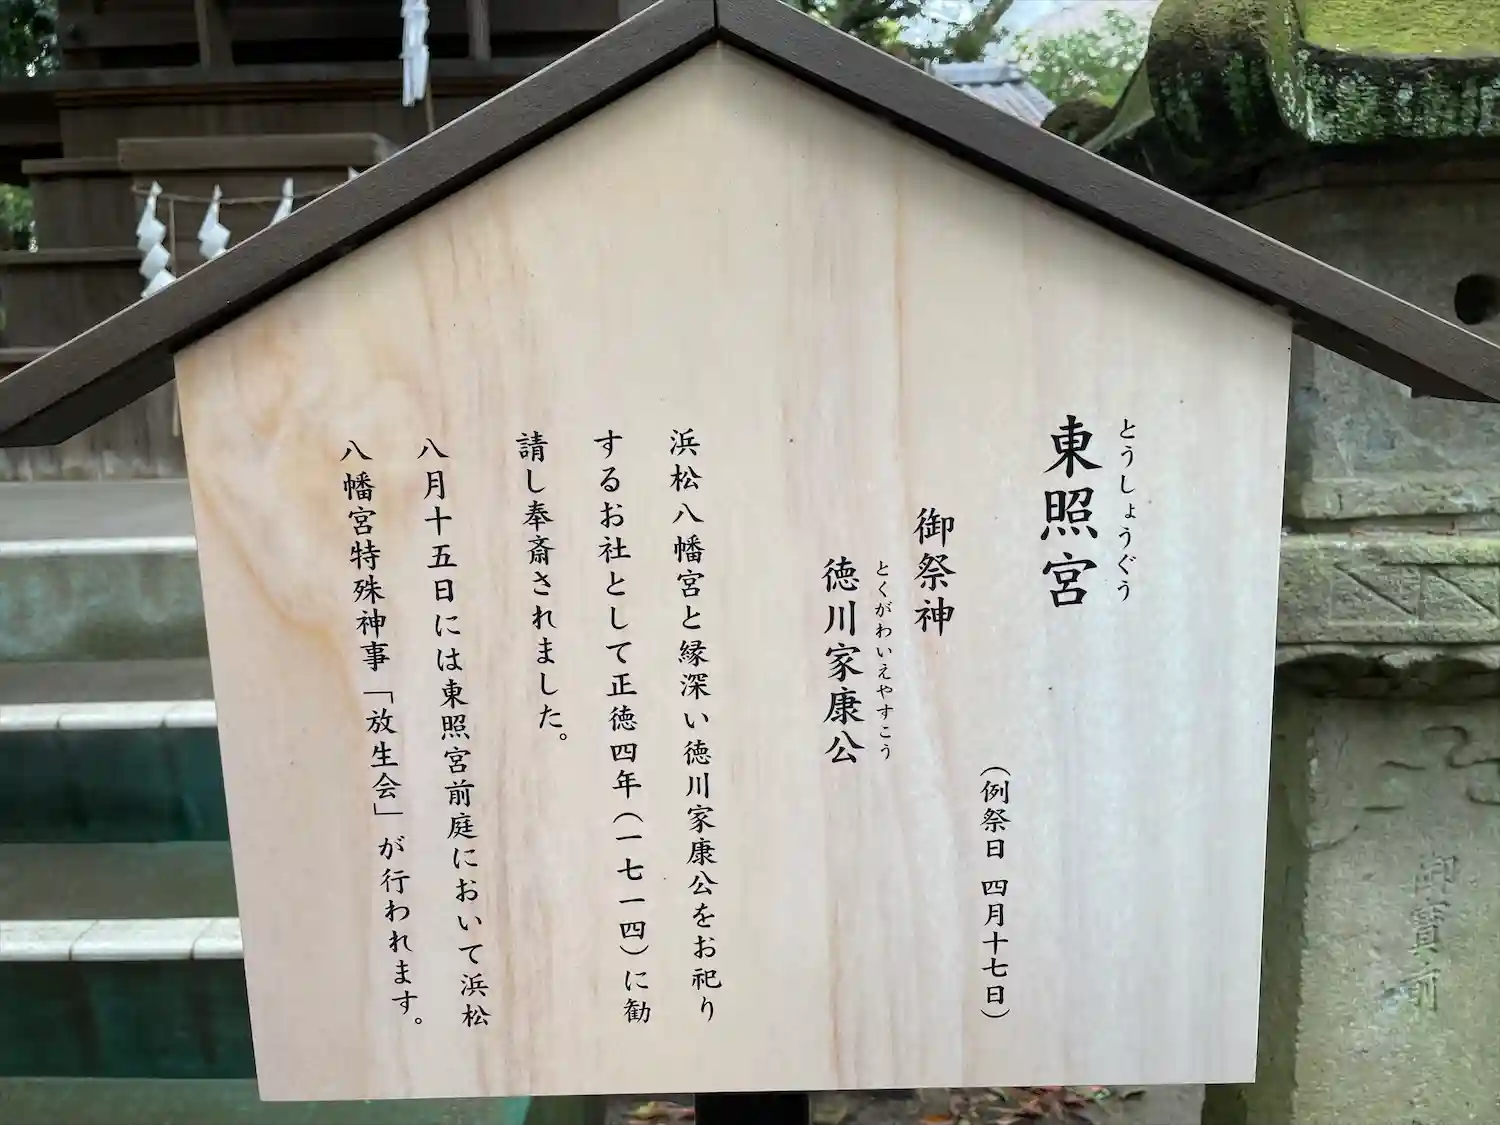 とうしょうぐう
東照宮
（例祭日 四月十七日）
御祭神
とくがわいえやすこう
徳川家康公
浜松八幡宮と縁深い徳川家康公をお祀り
するお社として正徳四年（一七一四）に勧
請し奉斎されました。
八月十五日には東照宮前庭において浜松
八幡宮特殊神事「放生会」が行われます。
御寳前